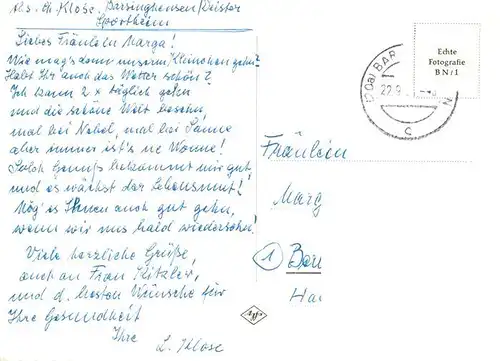 Abs. Ch. Klose, Barsinghausen/Deister
Sportheim
Liebes Fräulein Marga!
Wie mag's denn unserm Kleinchen gehn?
Habt Ihr auch das Wetter schön?
Ich kann 2 x täglich gehn
und die schöne Welt besehn,
mal bei Nebel, mal bei Sonne
aber immer ist's 'ne Wonne!
Solch Genuß bekommt mir gut,
und es wächst der Lebensmut!
Mög' es Ihnen auch gut gehn,
wenn wir uns bald wiedersehn!
Viele herzliche Grüße,
auch an Frau
und d. besten Wünsche für
Ihre Gesundheit
Ihre
L. Klose
Echte
Fotografie
BN/1
(20a) BAR
22.9.
N
c
Fräulein
Marg
1
Bon
Ha